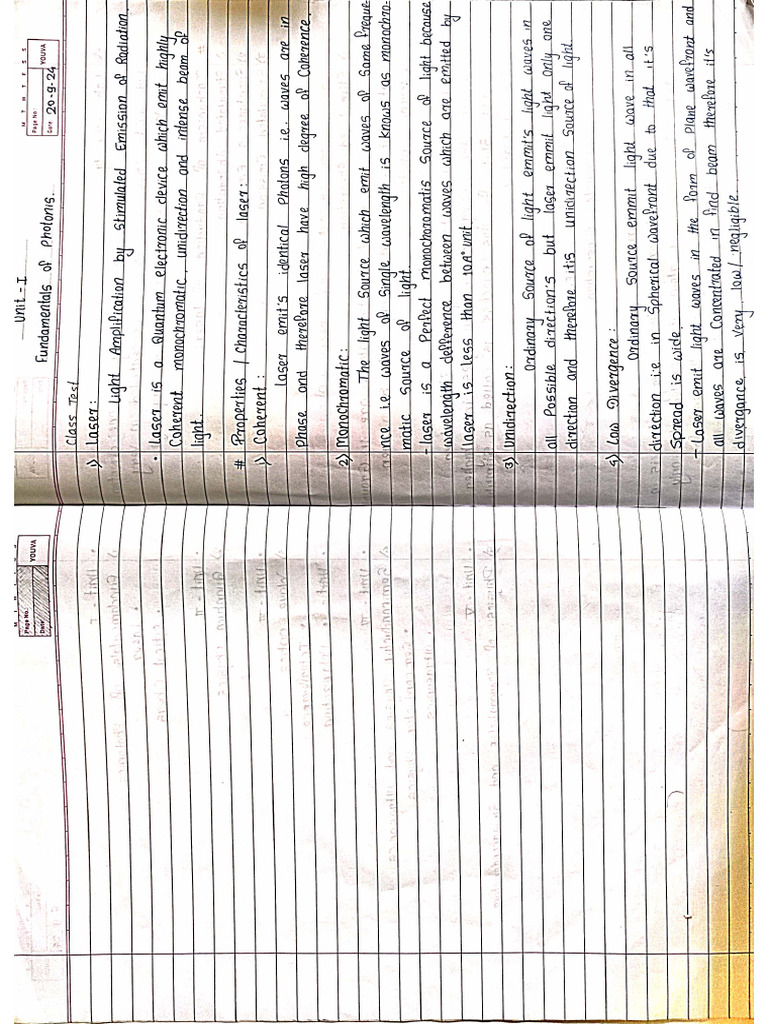 Unit - I
M T W T F S S
Page No.:
YOUVA
Date: 20-9-24
Fundamentals of Photonis.
Class Test
1) Laser:
Light Amplification by Stimulated Emission of Radiation
• Laser is a Quantum electronic device which emit highly
Coherent, monochromatic, unidirection and intense beam of
light.
# Properties / Characteristics of laser:
1) Coherent:
Laser emit's identical Photons i.e. waves are in
Phase and therefore laser have high degree of Coherence.
2) Monochromatic:
The light Source which emit waves of Same freque-
nce i.e. waves of Single wavelength is knows as monochro-
matic Source of light.
- laser is a Perfect monochromatis Source of light because
wavelength defference between waves which are emitted by
laser is less than 10A° unit.
3) Unidirection:
Ordinary Source of light emmit's light waves in
all Possible direction's but laser emmit light only one
direction and therefore it is unidirection Source of light.
4) Low Divergence:
Ordinary Source emmit light wave in all
direction i.e in Spherical wavefront due to that it's
Spread is wide.
- Laser emit light waves in the form of Plane wavefront and
all waves are Concentrated in find beam therefore it's
divergance is Very low/ negligible.
Page No.:
YOUVA
Date: